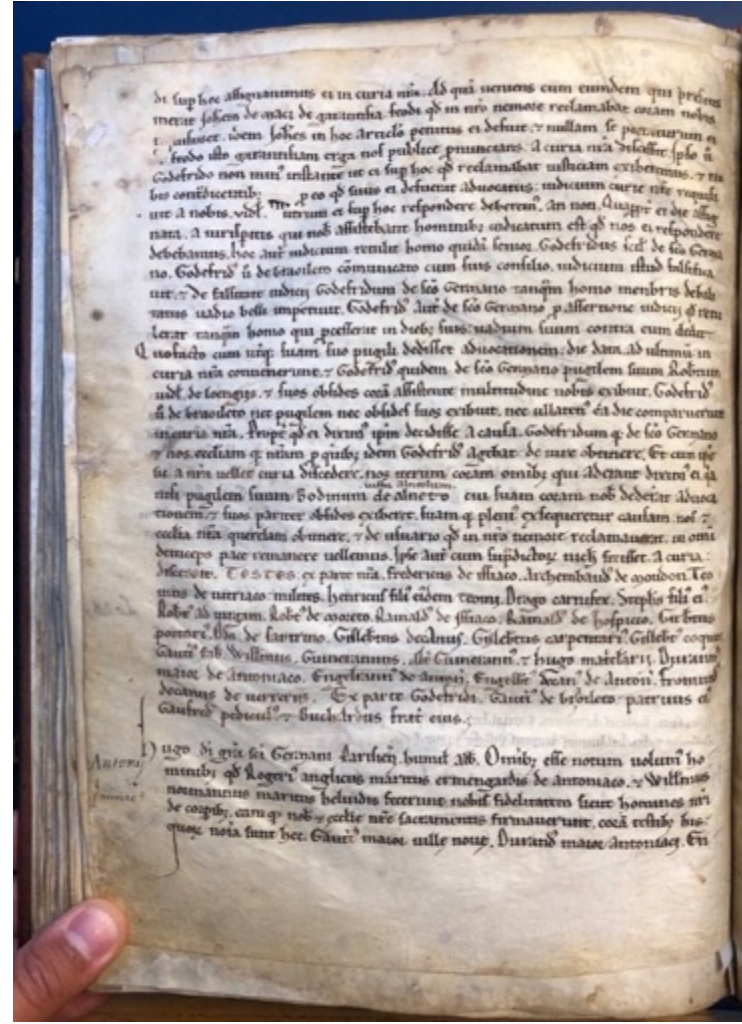 di sup hoc assignauimus et in curia nra. Ad quā ueniens cum eundem qui
merat Johem de maci de garantia feodi qd in nro nemore reclamabat coram nobis
idem Johes in hoc articlo penitus ei defuit, ⁊ nullam se portaturum ei
feodo isto garantiam erga nos publice pnuncians, a curia nra discessit. Ipso ū
Godefrido non min' instante ut ei sup hoc qd reclamabat iusticiam exiberemus, ⁊
bis contducentib; p eo qd suus ei defuerat aduocatus; iudicium curie nre
uit a nobis. uidl. utrum ei sup hoc respondere deberem', an non. Quappt ei die assig
nata, a iurispitis qui nob assistebant hominib; iudicatum est qd nos ei respondere
debebamus. hoc aut iudicium retulit homo quidā senior Godefridus de sco Germa
no. Godefrid' ū de braoileto cōmunicato cum suis consilio, iudicium istud falsifica
uit, ⁊ de falsitate iudicij Godefridum de sco Germano tanqm homo menbris debili
tatus uadio belli impetiuit. Godefrid' aut de sco Germano p assertione iudicij qd retu
lerat tanqm homo qui pcesserat in dieb; suis, uadium suum contra eum dedit.
Quo facto cum utq; suam suo pugili dedisset aduocationem, die data, ad ultimū in
curia nra conuenerunt, ⁊ Godefrid' quidem de sco Germano pugilem suum Robtum
uidl. de loengijs, ⁊ suos obsides corā assistente multitudine nobis exibuit. Godefrid'
ū de braoileto nec pugilem nec obsides suos exibuit, nec ea die comparuerunt
in curia nra. Propt qd ei dixim' ipm decidisse a causa, Godefridum q; de sco Germano
⁊ nos, eccliam q; nram p quib; idem Godefrid' agebat de iure obtinere. Et cum ipse
sic a nra uellet curia discedere, nos iterum coram omib; qui aderant dixim' ei qd
nisi pugilem suum Bodinum de alneto cui suam coram nob dederat aduoca
tionem, ⁊ suos pariter obsides exiberet, suam q; pleni' exsequeretur causam, nos ⁊
ecclia nra querelam obtinere, ⁊ de usuario qd in nro nemore reclamauerat in omi
deinceps pace remanere uellemus. Ipse aut cum supdictor nich fecisset, a curia
discessit. Testes ex parte nra. Fredericus de issiaco. Archembaud' de moudon. Teo
inus de uitriaco milites. henricus fili' eidem teoini. Drago carnifex. Stephs fili' ei'.
Robt' ad uirgam. Robt' de moreto. Rainald' de issiaco. Rainald' de hospicio. Girbtus
portari'. Odo de sartrino. Gislebtus decanus. Gislebtus carpentari'. Gislebt' coqus.
Gauti' fab. Willmus. Guinerannus. Guinerann'. ⁊ hugo matclarij. Durann'
maior de antoniaco. Engelrann' de antoni. de antoni. fromund'
decanus de uerrerijs. Ex parte Godefridi. Gauti' de broileto patruus ei'.
Gaufrid' pedicul' ⁊ Buchardus frat eius.
Hugo di gra sci Germani Parisien. humil abb. Omib; esse notum uolum' ho
minib; qd Rogeri' anglicus maritus ermengardis de antoniaco, ⁊ Willmus
normannus maritus heluidis fecerunt nobis fidelitatem sicut homines nri
de corpib;, eam q; nob ⁊ ecclie nre sacramentis firmauerunt, corā testib; his
quor noia sunt hec. Gauti' maior uille noue. Durand' maior antoniaci. En
Antoni